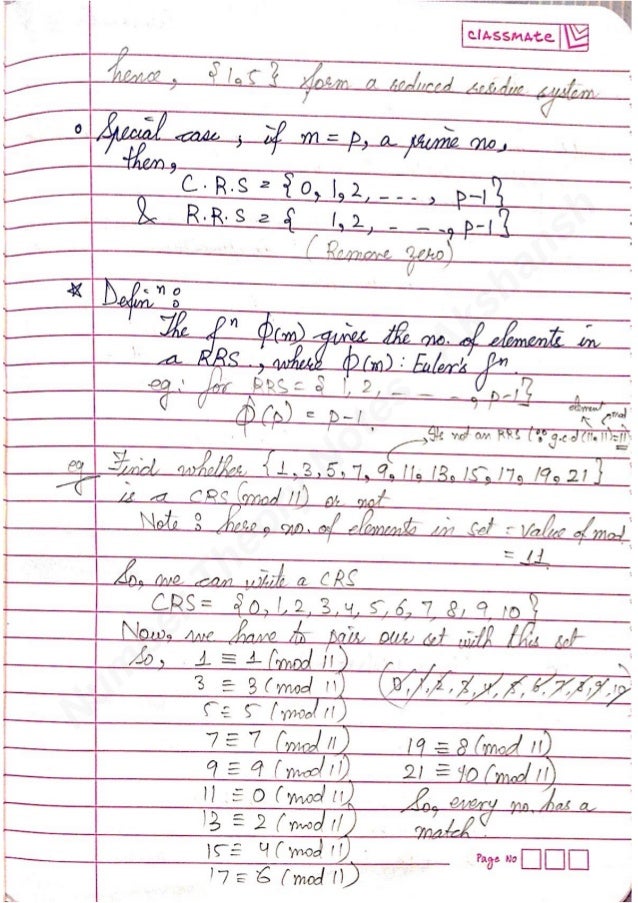 classmate
hence, {1,5} form a reduced residue system
Special case, if m = p, a prime no,
then,
C.R.S = {0, 1, 2, ----, p-1}
& R.R.S = { 1, 2, - - -, p-1}
(Remove zero)
* Definⁿ:
The fⁿ ϕ(m) gives the no. of elements in
a RRS., where ϕ(m): Euler's fⁿ.
eg: for RRS = {1, 2, - - - -, p-1}
ϕ(p) = p-1.
element mod
It's not an RRS (∵ g.c.d (11,11)=11)
eg Find whether {1, 3, 5, 7, 9, 11, 13, 15, 17, 19, 21}
is a CRS (mod 11) or not
Note: here, no. of elements in set = value of mod
= 11.
So, we can write a CRS
CRS = {0, 1, 2, 3, 4, 5, 6, 7, 8, 9 10}
Now, we have to pair our set with this set
So, 1 ≡ 1 (mod 11)
3 ≡ 3 (mod 11) (0, 1, 2, 3, 4, 5, 6, 7, 8, 9, 10)
5 ≡ 5 (mod 11)
7 ≡ 7 (mod 11)
9 ≡ 9 (mod 11)
11 ≡ 0 (mod 11)
13 ≡ 2 (mod 11)
15 ≡ 4 (mod 11)
17 ≡ 6 (mod 11)
19 ≡ 8 (mod 11)
21 ≡ 10 (mod 11)
So, every no. has a
match
Page No